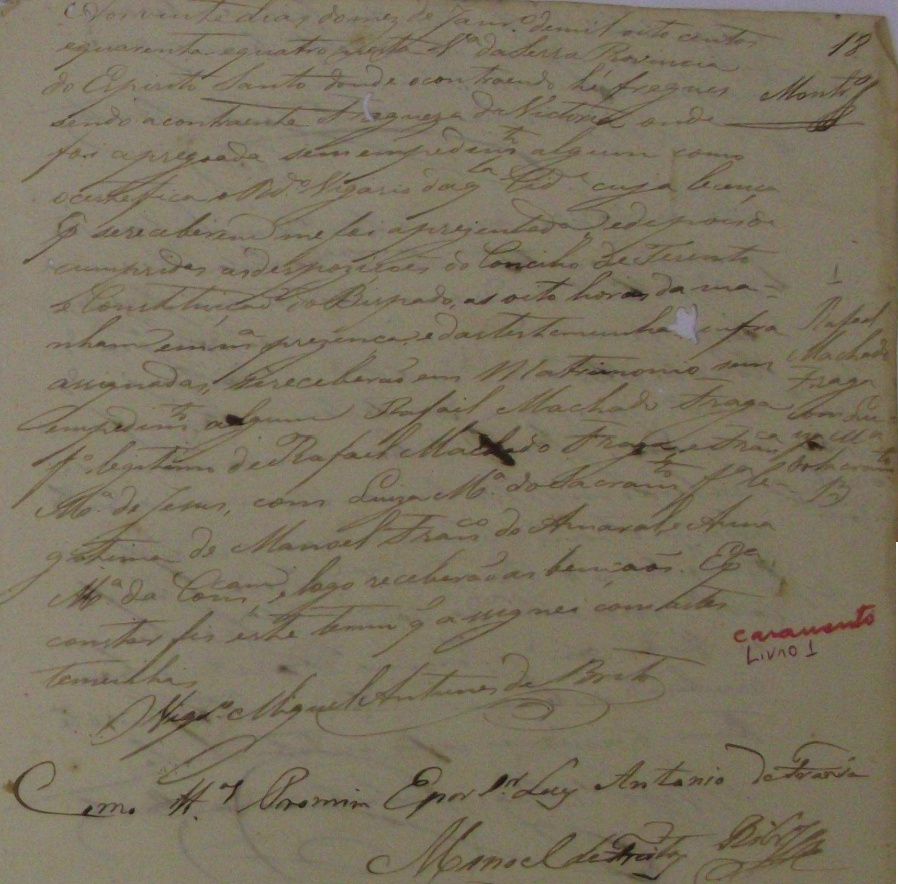 Aos vinte dias do mez de Janr.o de mil oito centos
e quarenta e quatro nesta V.a da Serra Provincia
do Espirito Santo donde o contraendo hé freguez
sendo a contraente Fregueza da Victoria onde
foi apregoada sem empedim.to algum como
o certefica o Rd.o Vigario daq.la Cid.e cuja licença
p.a se receberem me foi aprezentada, e depois de
cumpridas as desposições do Concilio de Trento
e Constituição do Bispado, as oito horas da ma=
nham em m.a prezença, e das testemunhas infra
assignadas, se receberão em Matrimonio sem
empedim.to algum Rafael Machado Fraga
f.o legitimo de Rafael Machado Fraga e Fran.ca
M.a de Jesus, com Luiza M.a do Sacram.to f.a le-
gitima de Manoel Fran.co do Amaral e Anna
M.a da Conc.am e logo receberão as bençãos. E p.a
constar fis este termo q assignei com as tes
temunhas
Vigr.o Miguel Antunes de Brito
Como tt.as Promim E por Luiz Antonio de
Manoel de Freitas
18
1
Rafael
Machado
Fraga
com Lu=
iza M.a
do Sacram.to
B
casamento
Livro 1